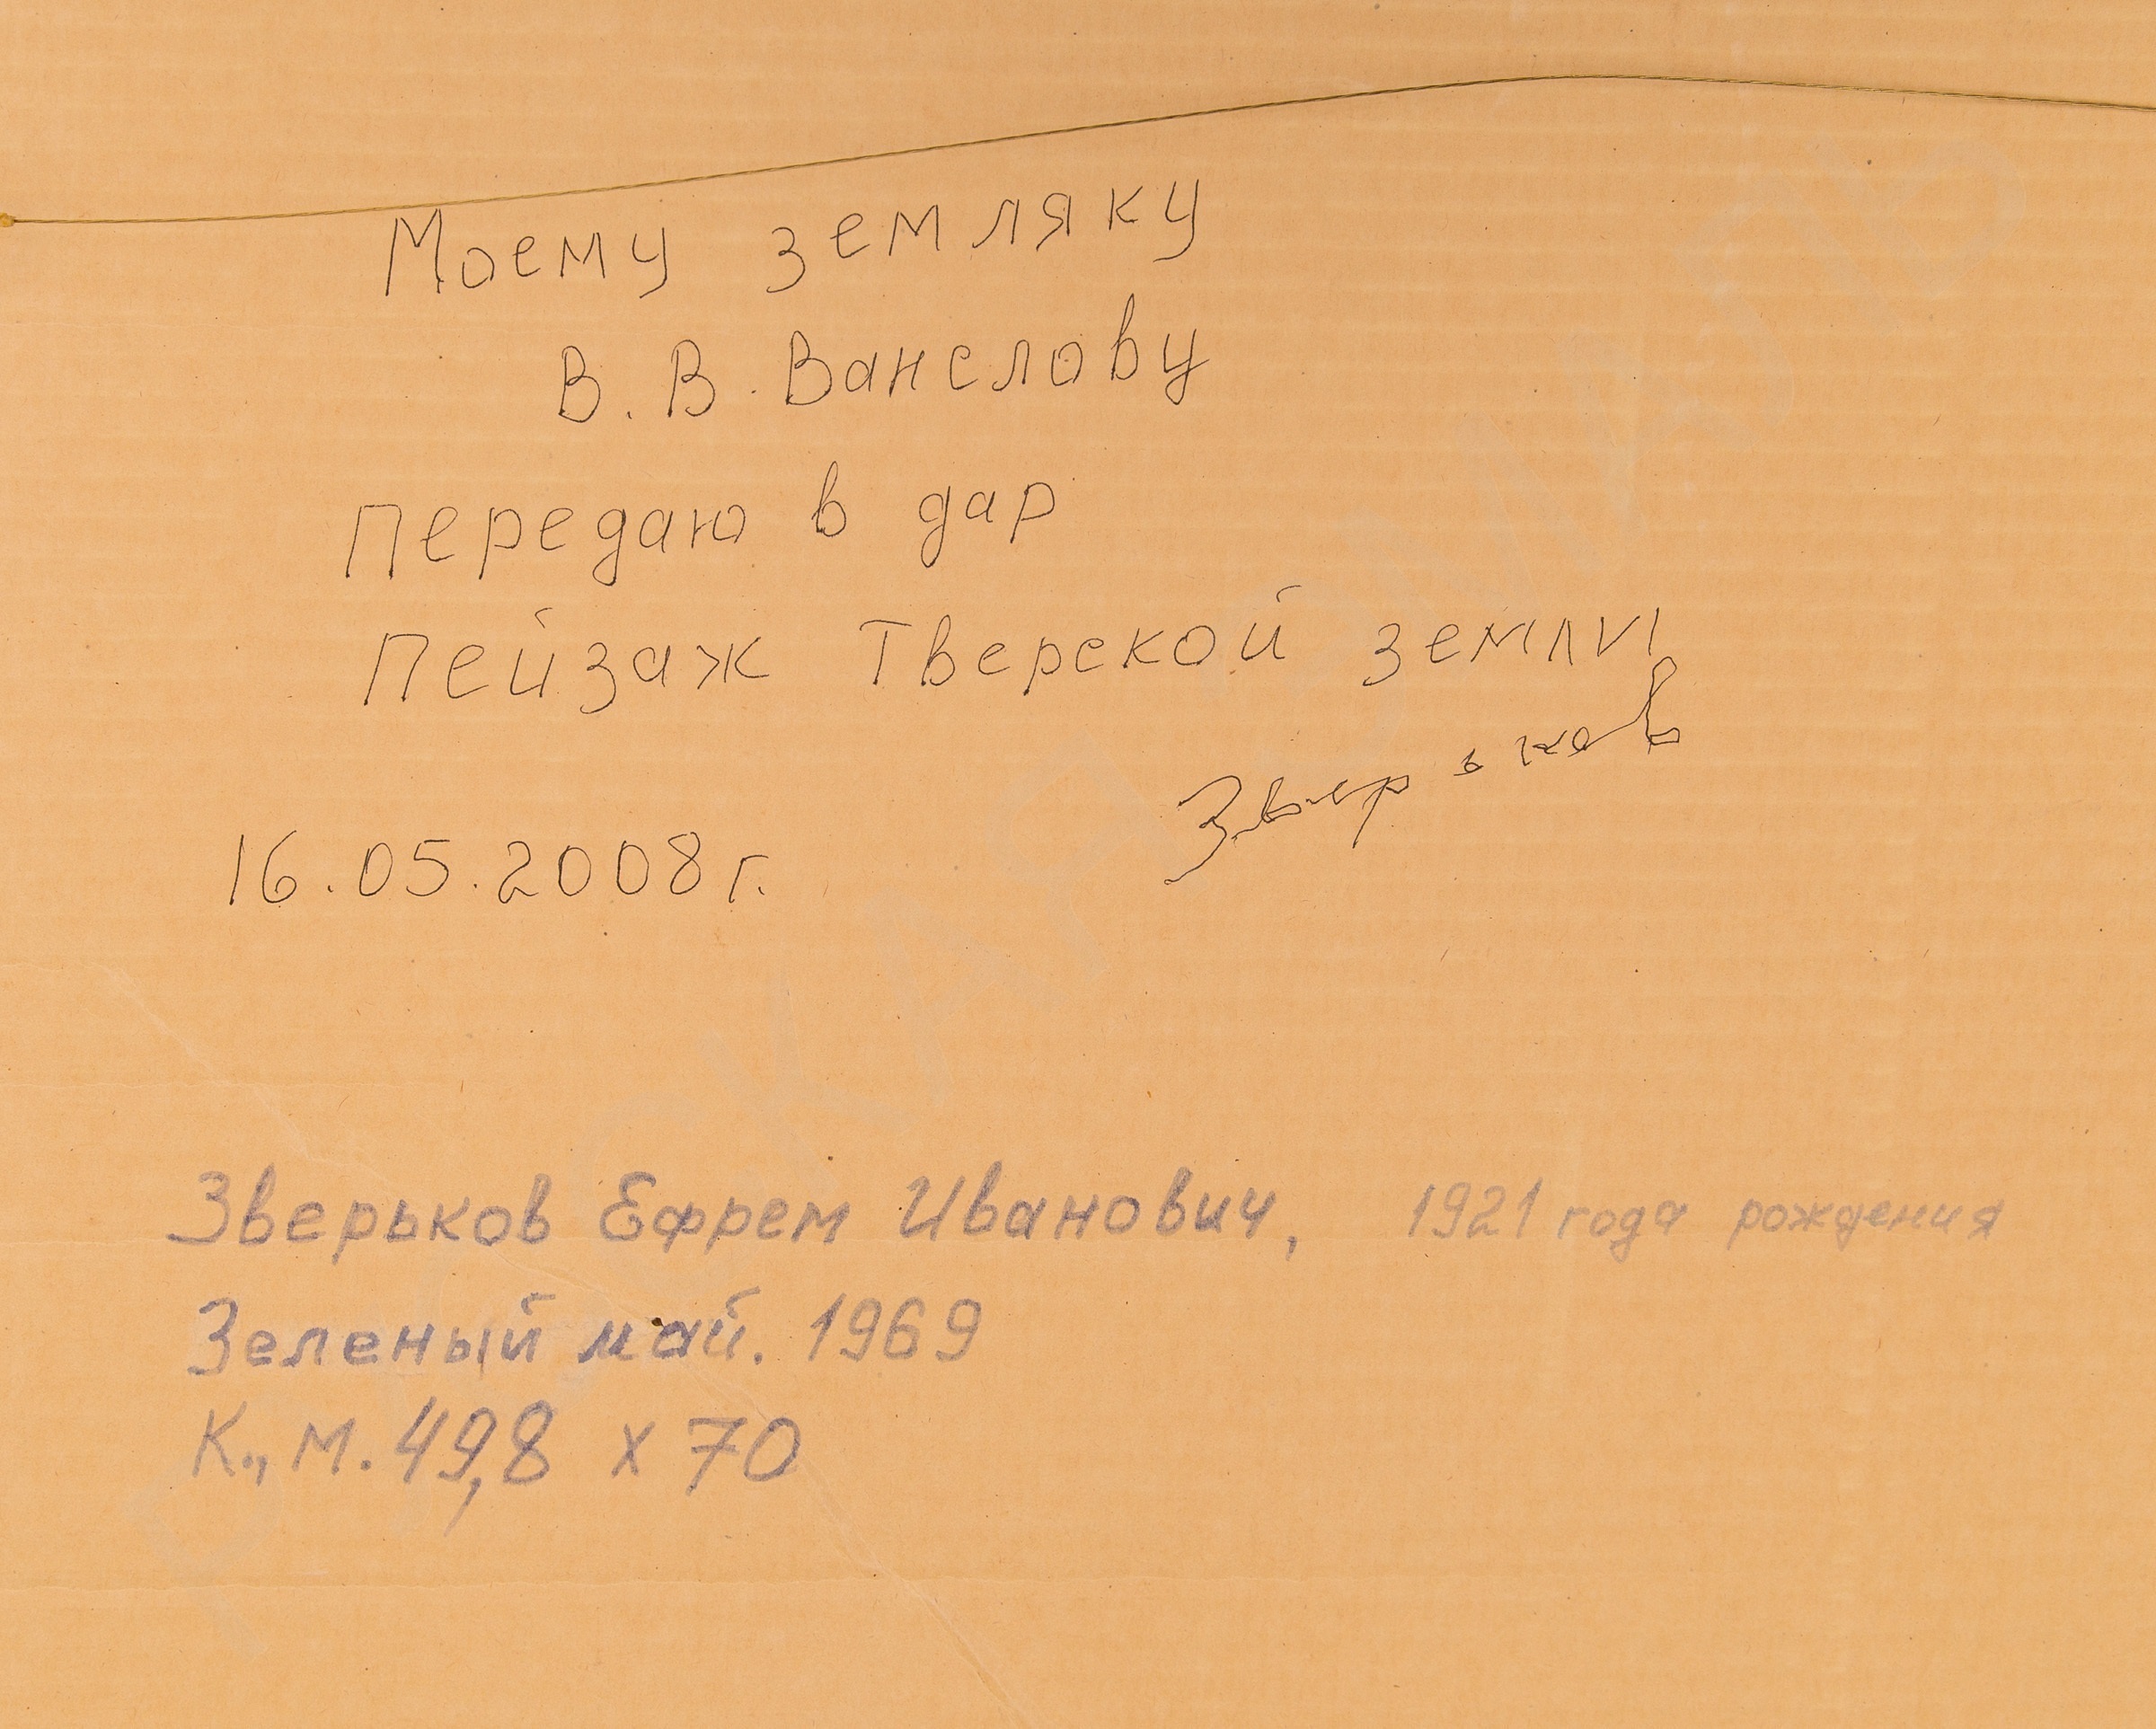 Моему земляку
В. В. Ванслову
Передаю в дар
Пейзаж Тверской земли
Зверьков
16.05.2008 г.
Зверьков Ефрем Иванович, 1921 года рождения
Зеленый май. 1969
К., м. 49,8 х 70